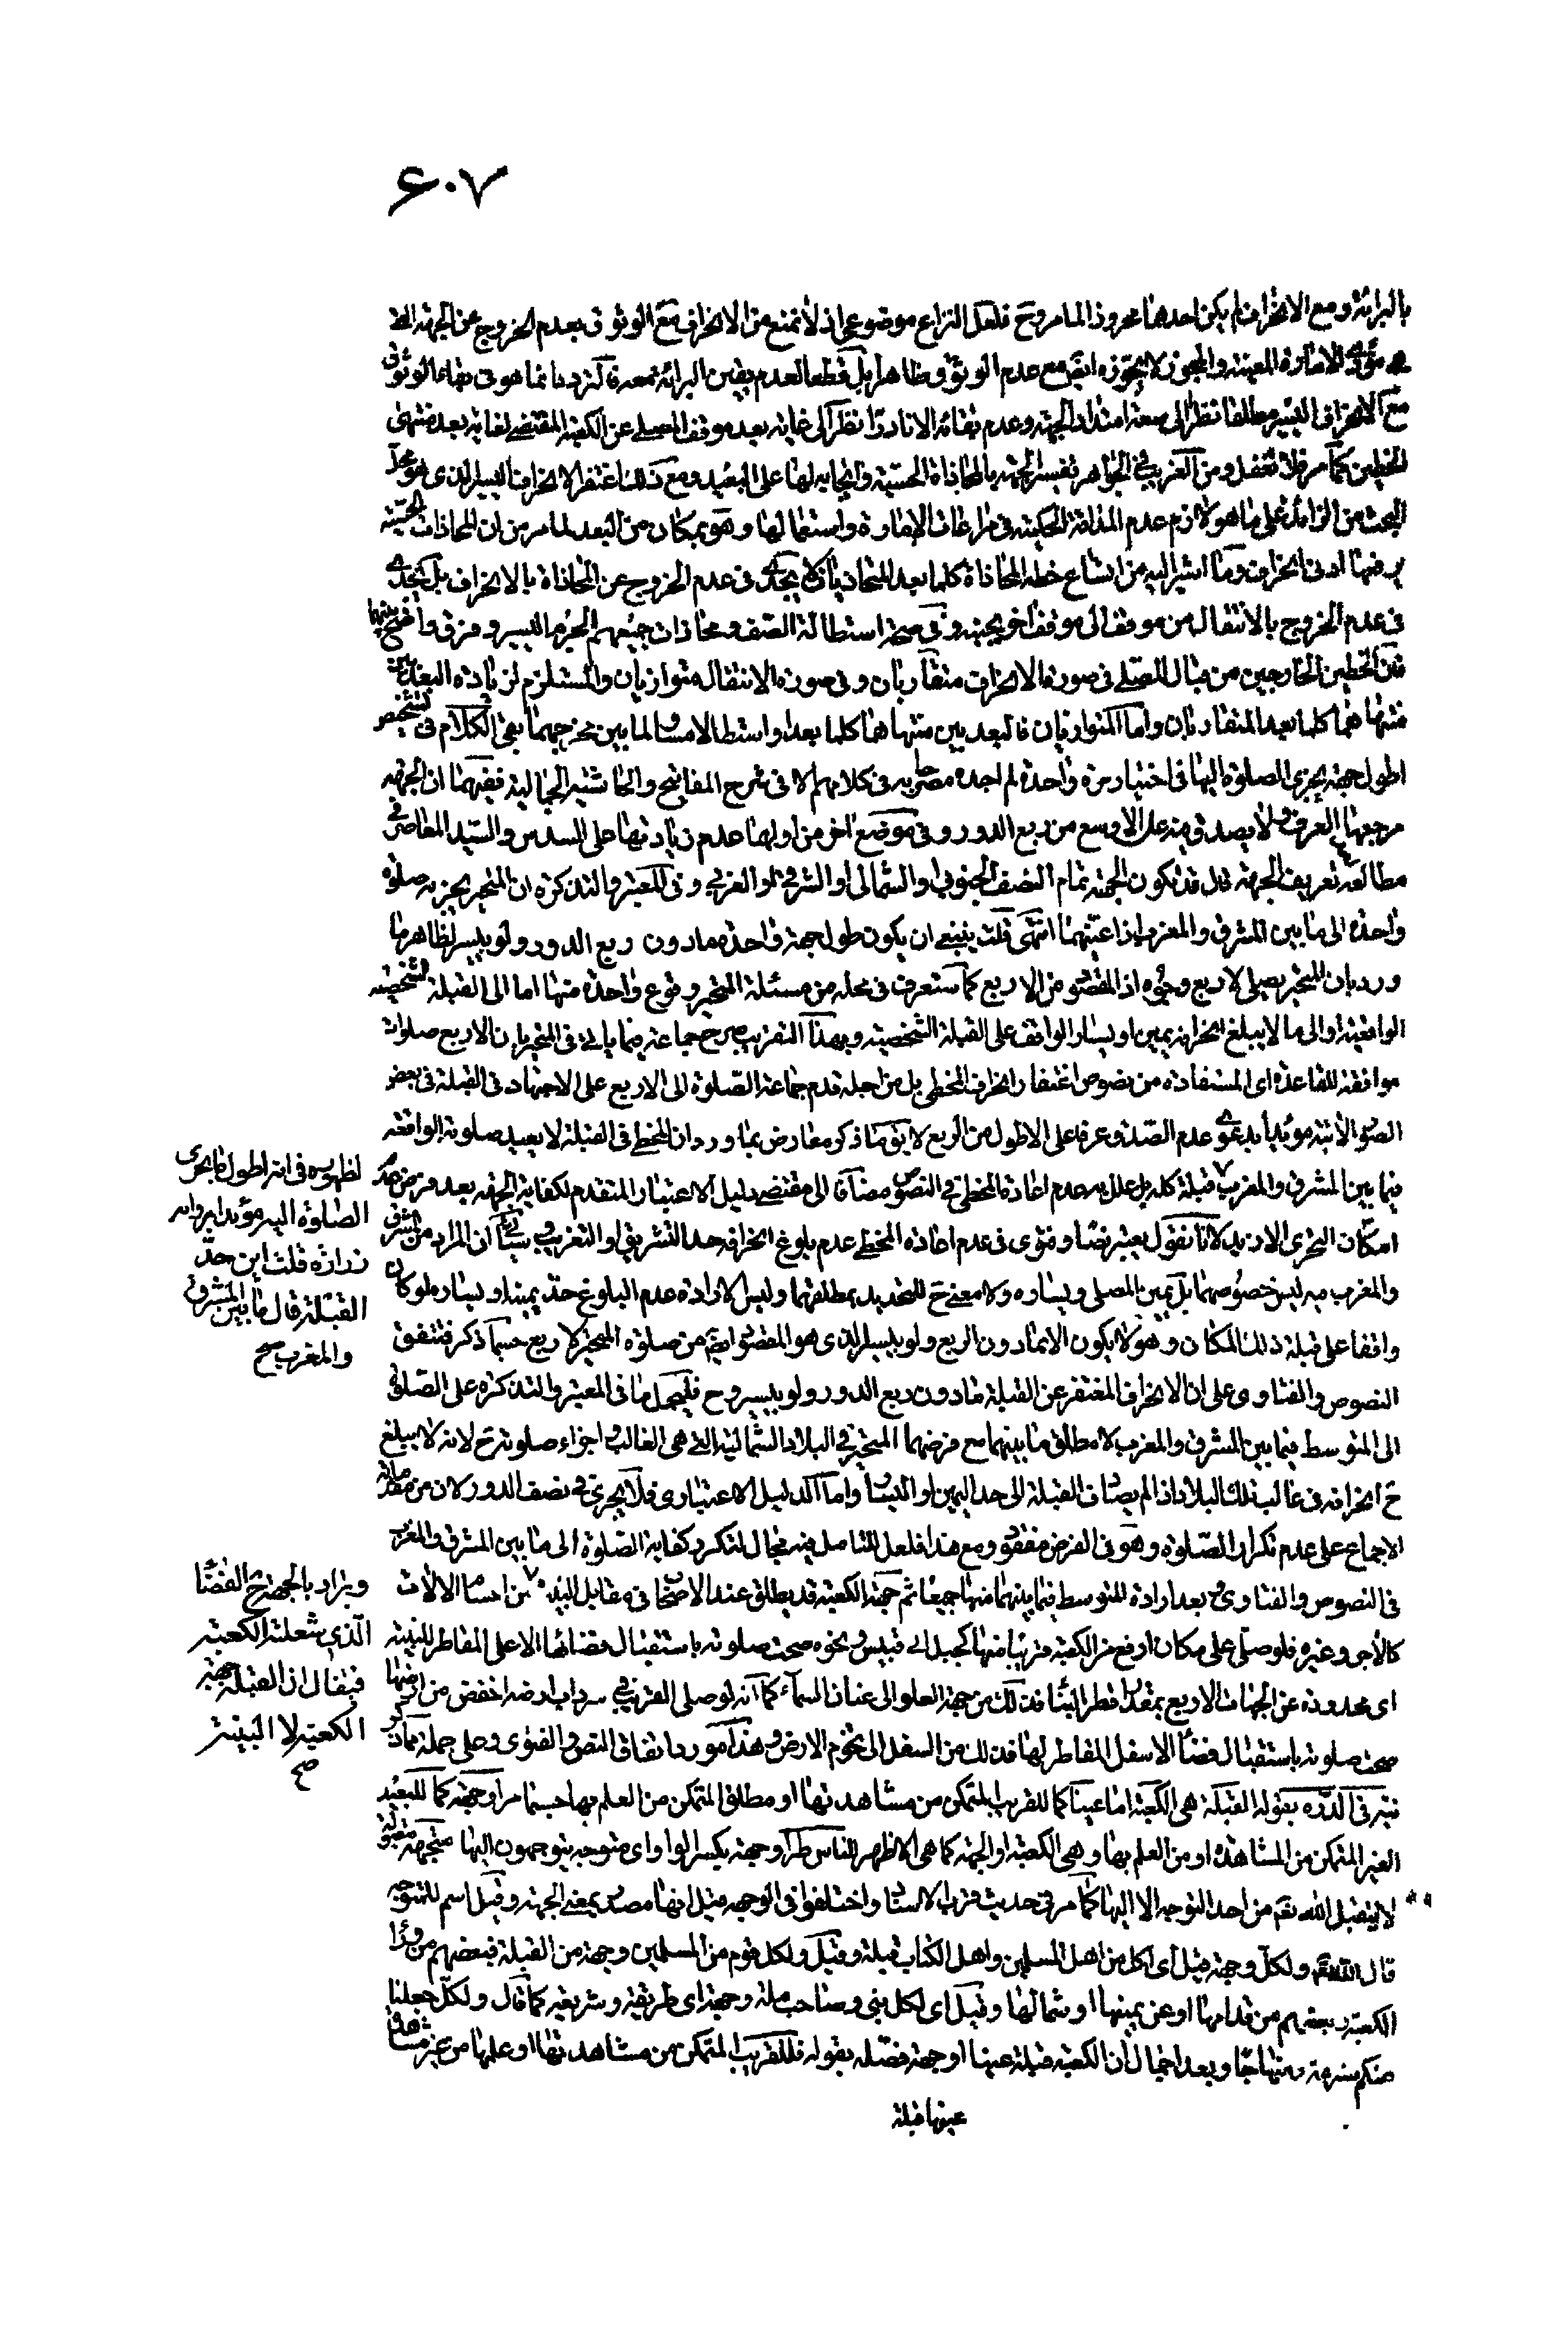 ۶۰۷
بالبرائة و مع الانحراف لم يكن احدهما محرز المامر و ح فلعل النزاع موضوعى اذ لا نمنع من الانحراف مع الوثوق بعدم الخروج عن الجهة
مؤدى الامارة المعينة والمجوز لا يجوزه ايضا مع عدم الوثوق ظاهرا بل قطعا لعدم يقين البرائة معه فالنزديد انما هو فى بقاء الوثوق
مع الانحراف اليسير مطلقا نظرا الى سعة امتداد الجهة و عدم بقائه الا نادرا نظرا الى غاية بعد موقف المصلى عن الكعبة المقتضى لغاية بعد منتهى
الخطين كما مر فلا تغفل و من الغريب فى الجواهر تفسير الجهة بالمحاذاة الحسية و ايجابه لها على البعيد و مع ذلك اغتفر الانحراف اليسير الذى هو محل
البحث من الزائد على ما هو لازم عدم المداقة الحكمية فى مراعات الامارة و استعمالها و هو بمكان من البعد لما مر من ان المحاذات الحسية
يرفعها ادنى انحراف و ما اشير اليه من اتساع خطة المحاذاة كلما بعد المتحاذيان لا يجدى فى عدم الخروج عن المحاذاة بالانحراف بل يجدى
فى عدم الخروج بالانتقال من موقف الى موقف اخر بجنبه و فى صحة استطالة الصف و محاذات جميعهم الجرم اليسير و فرق واضح بينهما
فان الخطين الخارجين من قبال المصلى فى صورة الانحراف متقاربان و فى صورة الانتقال متوازيان و المستلزم لزيادة البعد بين
منتهاهما كلما بعد المتقاربان و اما المتوازيان فالبعد بين منتهاهما كلما بعدا و استطالا مساو لما بين مخرجيهما بقى الكلام فى تشخيص
اطول جهة يجزى الصلوة اليها فى اختيار مرة واحدة لم اجده مصرحا به فى كلامهم الا فى شرح المفاتيح و الحاشية الجمالية ففيهما ان الجهة
مرجعها العرف و لا يصدق منه على الاوسع من ربع الدور و فى موضع اخر من اولهما عدم زيادتها على السدس و السيد المعاصر فى
مطالعه تعريف الجهة قال قد تكون الجهة تمام النصف الجنوبى او الشمالى او الشرقى او الغربى و فى المعتبر و التذكرة ان المتحير يجزيه صلوة
واحدة الى ما بين المشرق و المغرب اذا عينهما انتهى قلت ينبغى ان يكون طول جهة واحدة ما دون ربع الدور و لو بيسير لظاهر ما
ورد بان المتحير يصلى لاربع وجوه اذ المقصود من الاربع كما ستعرف فى محله من مسئلة المتحير وقوع واحدة منها اما الى القبلة الشخصية
الواقعية او الى ما لا يبلغ انحرافه يمين او يسار الواقف على القبلة الشخصية و بهذا التقريب صرح جماعة فيما ياتى فى المتحير بان الاربع صلوات
موافقة للقاعدة اى المستفادة من نصوص اغتفار انحراف المخطى بل من اجله قدم جماعة الصلوة الى الاربع على الاجتهاد فى القبلة فى بعض
الصور الاتية مؤيدا بدعوى عدم الصدق عرفا على الاطول من الربع لا يق ما ذكر معارض بما ورد ان المخطى فى القبلة لا يعيد صلوته الواقعة
فيما بين المشرق و المغرب قبلة كله بل علل به عدم اعادة المخطى فى النصوص مضافا الى مقتضى دليل الاعتبار المتقدم لكفاية الجهة بعد فرض عدم
امكان التحرى الازيد لانا نقول يعتبر نصا و فتوى فى عدم اعادة المخطى عدم بلوغ انحرافه حد التشريق او التغريب و سياتى ان المراد من المشرق
و المغرب فيه ليس خصوصهما بل يمين المصلى و يساره و لا معنى ح للتحديد بمطلقهما و ليس الا ارادة عدم البلوغ حد يمينه او يساره لو كان
واقفا على قبلة ذلك المكان و هو لا يكون الا بما دون الربع و لو بيسير الذى هو المقصود ايضا من صلوة المتحير لاربع حسبما ذكر فتتفق
النصوص و الفتاوى على ان الانحراف المغتفر عن القبلة ما دون ربع الدور و لو بيسير و ح فليحمل ما فى المعتبر و التذكرة على الصلوة
الى المتوسط فيما بين المشرق و المغرب لا مطلق ما بينهما مع فرضهما المتحير فى البلاد الشمالية التى هى الغالب و اجزاء صلوته ح لانه لا يبلغ
ح انحرافه فى غالب تلك البلاد اذا لم يصادف القبلة الى حد اليمين او اليسار و اما الدليل الاعتبارى فلا يجرى فى نصف الدور لان من مقدماته
الاجماع على عدم تكرار الصلوة و هو فى الفرض مفقود و مع هذا فلعل للتامل فيه مجال لتكرر كفاية الصلوة الى ما بين المشرق و المغرب
فى النصوص و الفتاوى و بعد ارادة المتوسط فيما بينهما منها جميعا ثم جهة الكعبة قد يطلق عند الاصحاب فى مقابل البنية من اجسام الالات
كالاجر و غيره فلو صلى على مكان ارفع من الكعبة قريبا منها كجبل ابى قبيس و نحوه صحت صلوته باستقبال فضائها الاعلى المقاطر للبنية
اى محدودة عن الجهات الاربع بمقدار قطر البناء فذلك من جهة العلو الى عنان السماء كما انه لو صلى القريب فى سرداب ارضه اخفض من ارضها
صحت صلوته باستقبال فضاء الاسفل المقاطر لها فذلك من السفل الى تخوم الارض و هذا مورد اتفاق النص و الفتوى و على جملة ما ذكر
نبه فى الدرة بقوله القبلة هى الكعبة اما عينا كما للقريب المتمكن من مشاهدتها او مطلق المتمكن من العلم بها حسبما مر او جهة كما للبعيد
الغير المتمكن من المشاهدة او من العلم بها و هى الكعبة او الجهة كما هى الاظهر للناس طرا وجهة بكسر الواو اى متوجه يتوجهون اليها متجهة مقبولة
لا يتقبل الله تعم من احد التوجه الا اليها كما مر فى حديث قرب الاسناد و اختلفوا فى الوجهة قيل انها مصدر بمعنى الجهة و قيل اسم للمتوجه
قال الله تعم و لكل وجهة قيل اى لكل من اهل المسلمين و اهل الكتاب قبلة و قيل و لكل قوم من المسلمين وجهة من القبلة فبعضهم من وراء
الكعبة و بعضهم من قدامها او عن يمينها او شمالها و قيل اى لكل نبى و صاحب ملة وجهة اى طريقة و شريعة كما قال و لكل جعلنا
منكم شرعة و منهاجا و بعد اجمال ان الكعبة قبلة عينا او جهة فصله بقوله فللقريب المتمكن من مشاهدتها او علمها من غير مشاهدة
عينها قبلة
لظهوره فى انه اطول ما يجزى
الصلوة اليه مؤيدا برواية
زرارة قلت اين حد
القبلة قال ما بين المشرق
و المغرب صح
و يراد بالجهة ح الفضاء
الذى شغلته الكعبة
فيقال ان القبلة جهة
الكعبة لا البنية
صح